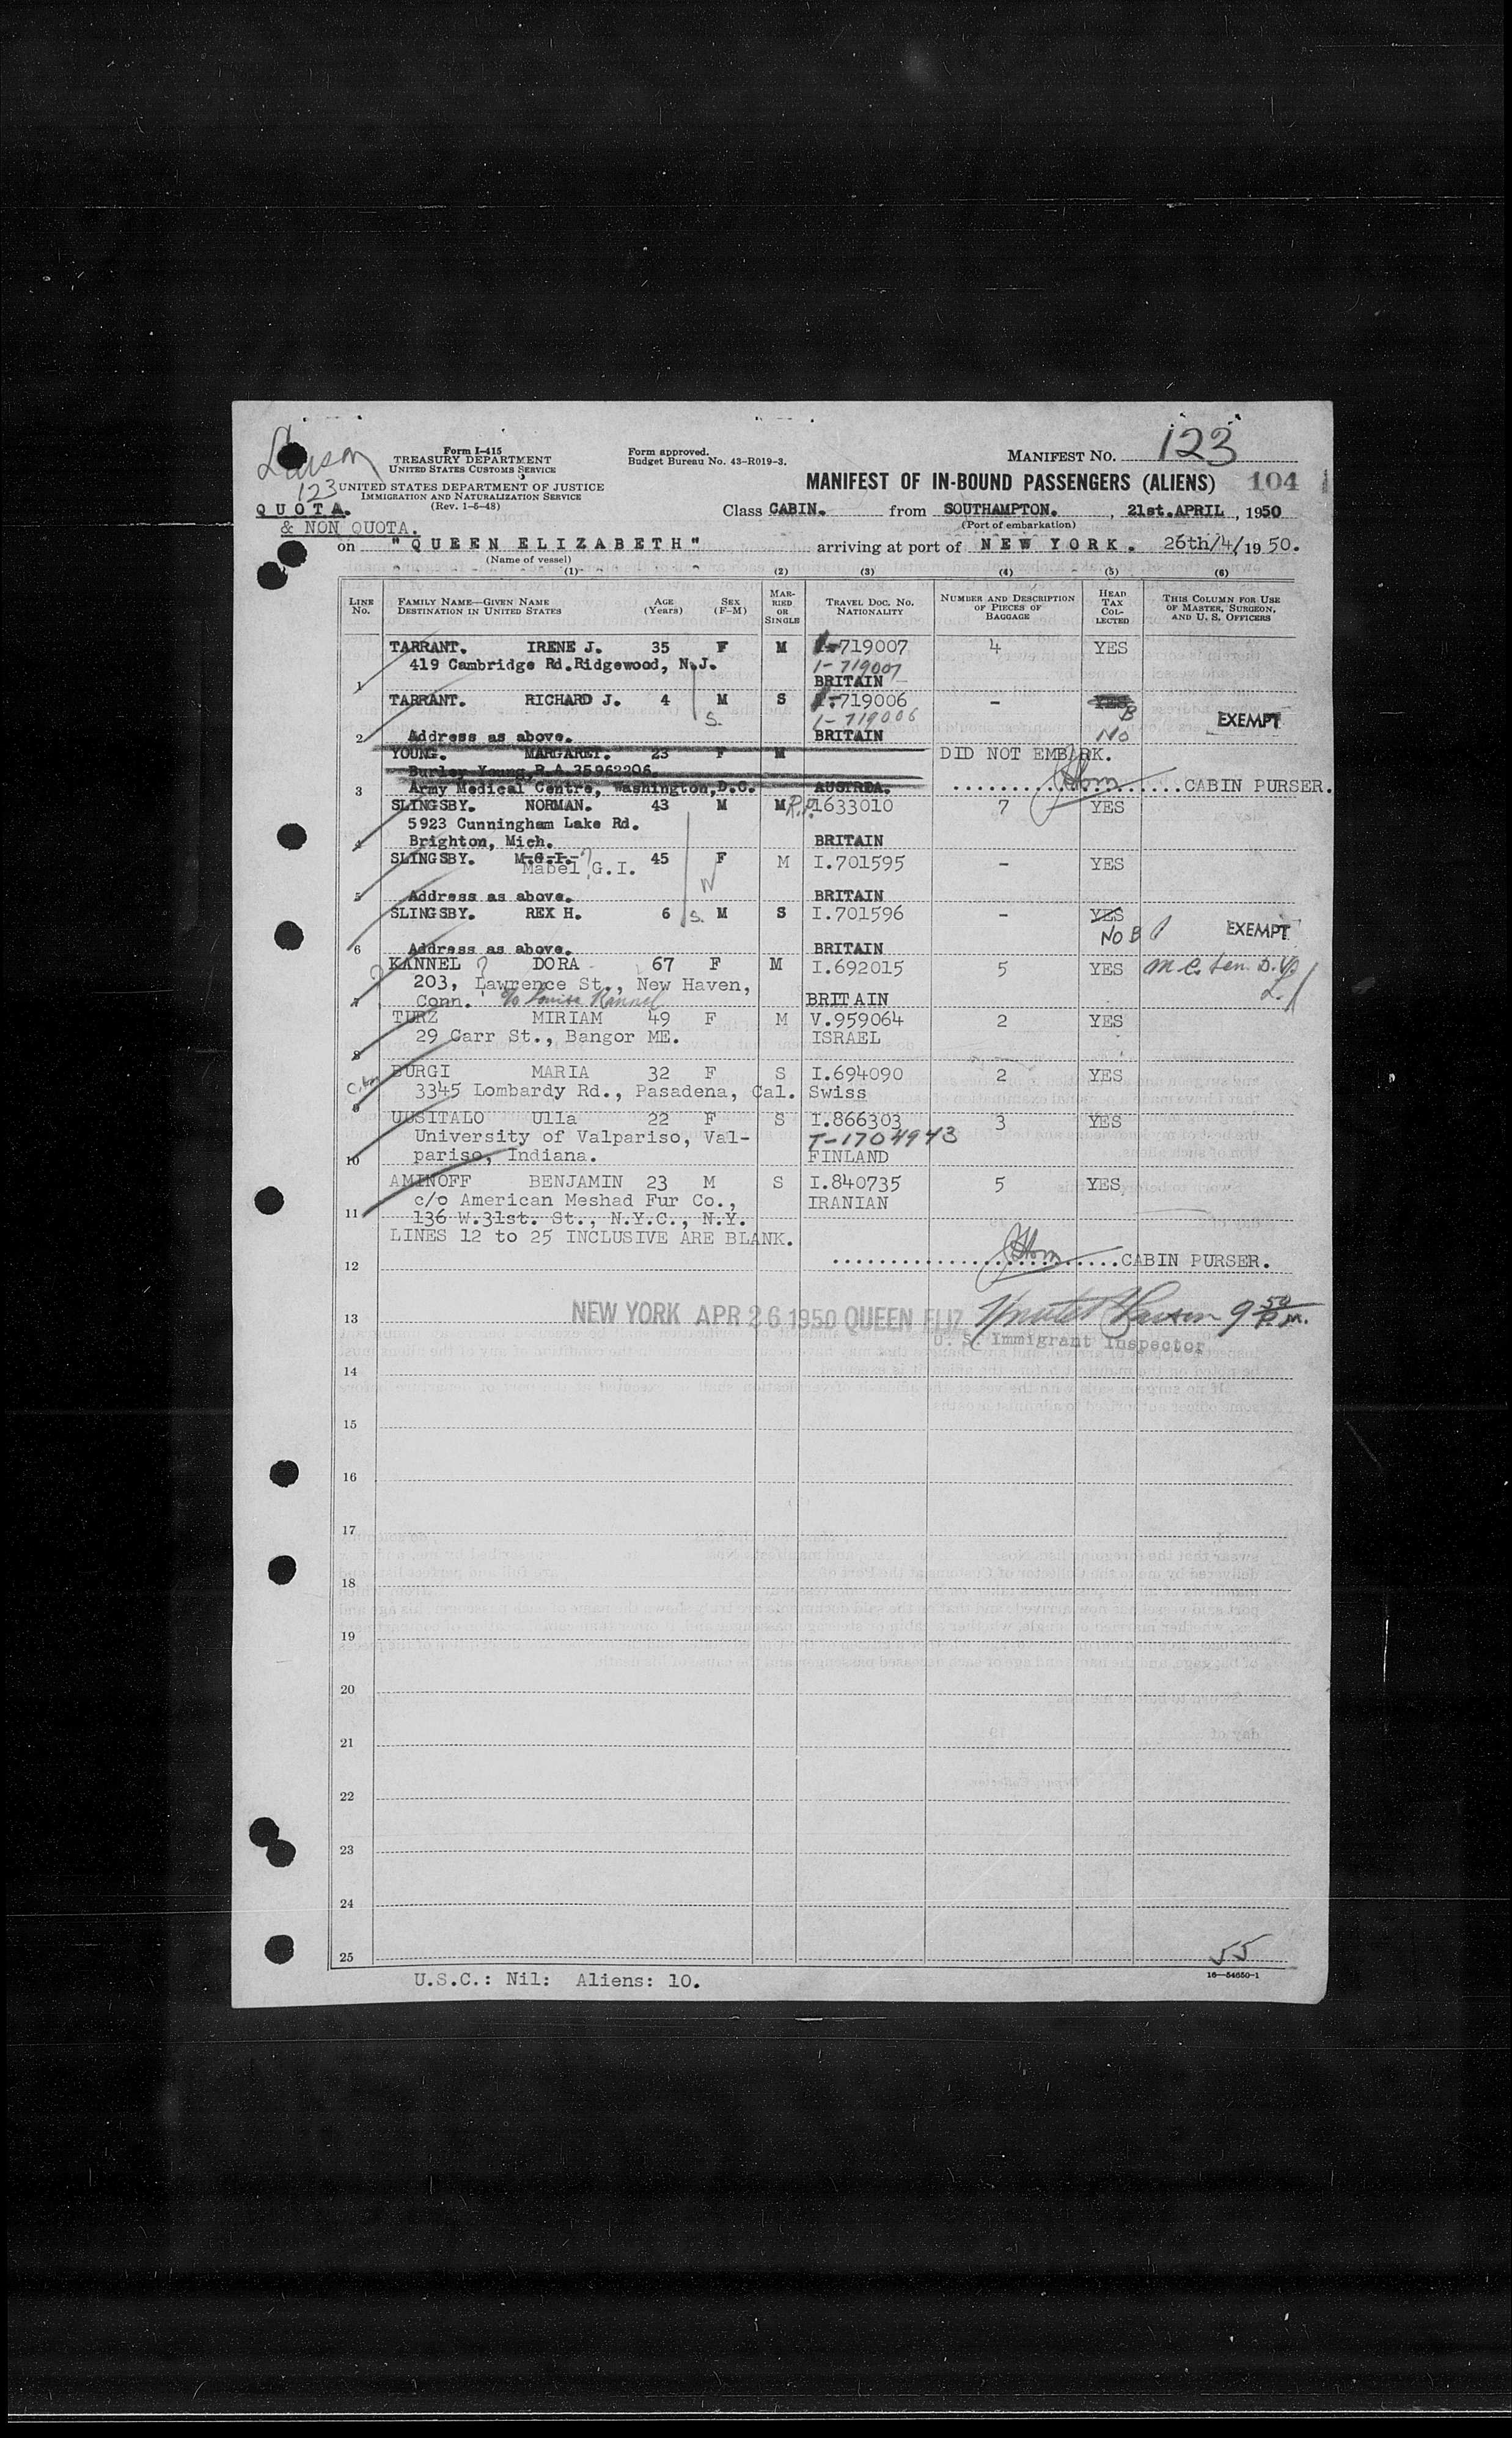 Larson
123
Form I-415
TREASURY DEPARTMENT
UNITED STATES CUSTOMS SERVICE
UNITED STATES DEPARTMENT OF JUSTICE
IMMIGRATION AND NATURALIZATION SERVICE
(Rev. 1-5-48)
Form approved.
Budget Bureau No. 43-R019-3.
MANIFEST NO. 123
MANIFEST OF IN-BOUND PASSENGERS (ALIENS) 104
QUOTA.
& NON QUOTA.
Class CABIN. from SOUTHAMPTON. , 21st.APRIL , 1950
(Port of embarkation)
on "QUEEN ELIZABETH" arriving at port of NEW YORK. 26th/4/1950.
(Name of vessel)
(1) (2) (3) (4) (5) (6)
LINE No. FAMILY NAME—GIVEN NAME DESTINATION IN UNITED STATES AGE (Years) SEX (F-M) MARRIED OR SINGLE TRAVEL DOC. NO. NATIONALITY NUMBER AND DESCRIPTION OF PIECES OF BAGGAGE HEAD TAX COLLECTED THIS COLUMN FOR USE OF MASTER, SURGEON, AND U. S. OFFICERS
TARRANT. IRENE J. 35 F M I-719007 4 YES
419 Cambridge Rd.Ridgewood, N.J. 1-719007
1 BRITAIN
TARRANT. RICHARD J. 4 M S I-719006 - YES
S. 1-719006 B EXEMPT
2 Address as above. BRITAIN No
YOUNG. MARGARET. 23 F M DID NOT EMBARK.
Burley Young,R.A.35962206.
3 Army Medical Centre, Washington,D.C. AUSTRIA. CABIN PURSER.
SLINGSBY. NORMAN. 43 M M R.P. 1633010 7 YES
5923 Cunningham Lake Rd.
4 Brighton, Mich. BRITAIN
SLINGSBY. M.G.I. 45 F M I.701595 - YES
Mabel G.I.
5 Address as above. BRITAIN
SLINGSBY. REX H. 6 S. M S I.701596 - YES
No B EXEMPT
6 Address as above. BRITAIN
KANNEL ? DORA 67 F M I.692015 5 YES
203, Lawrence St., New Haven,
7 Conn. c/o Louise Kannel BRITAIN
TURZ MIRIAM 49 F M V.959064 2 YES
29 Carr St., Bangor ME. ISRAEL
8
BURGI MARIA 32 F S I.694090 2 YES
3345 Lombardy Rd., Pasadena, Cal. Swiss
9
UUSITALO Ulla 22 F S I.866303 3 YES
University of Valpariso, Val- T-1704943
10 pariso, Indiana. FINLAND
AMINOFF BENJAMIN 23 M S I.840735 5 YES
c/o American Meshad Fur Co., IRANIAN
11 136 W.31st. St., N.Y.C., N.Y.
LINES 12 to 25 INCLUSIVE ARE BLANK.
12 CABIN PURSER.
13 NEW YORK APR 26 1950 QUEEN ELIZ Larson 9 50 P.m.
U. S. Immigrant Inspector
14
15
16
17
18
19
20
21
22
23
24
25
55
U.S.C.: Nil: Aliens: 10.
16—54650-1